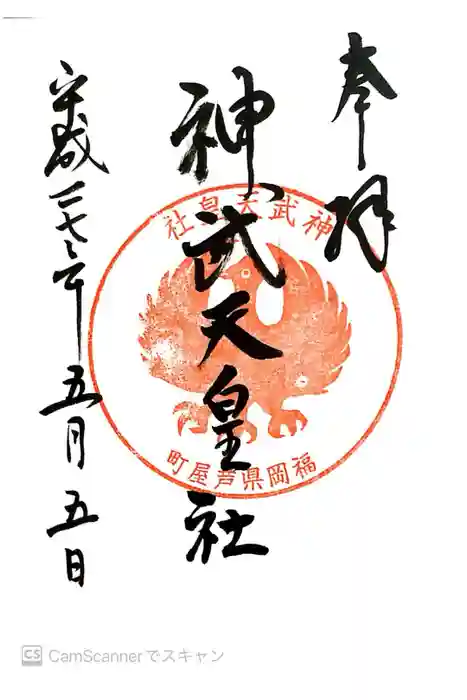 奉拝
神武天皇社
神武天皇社
福岡県芦屋町
平成二七年五月五日
CS CamScannerでスキャン